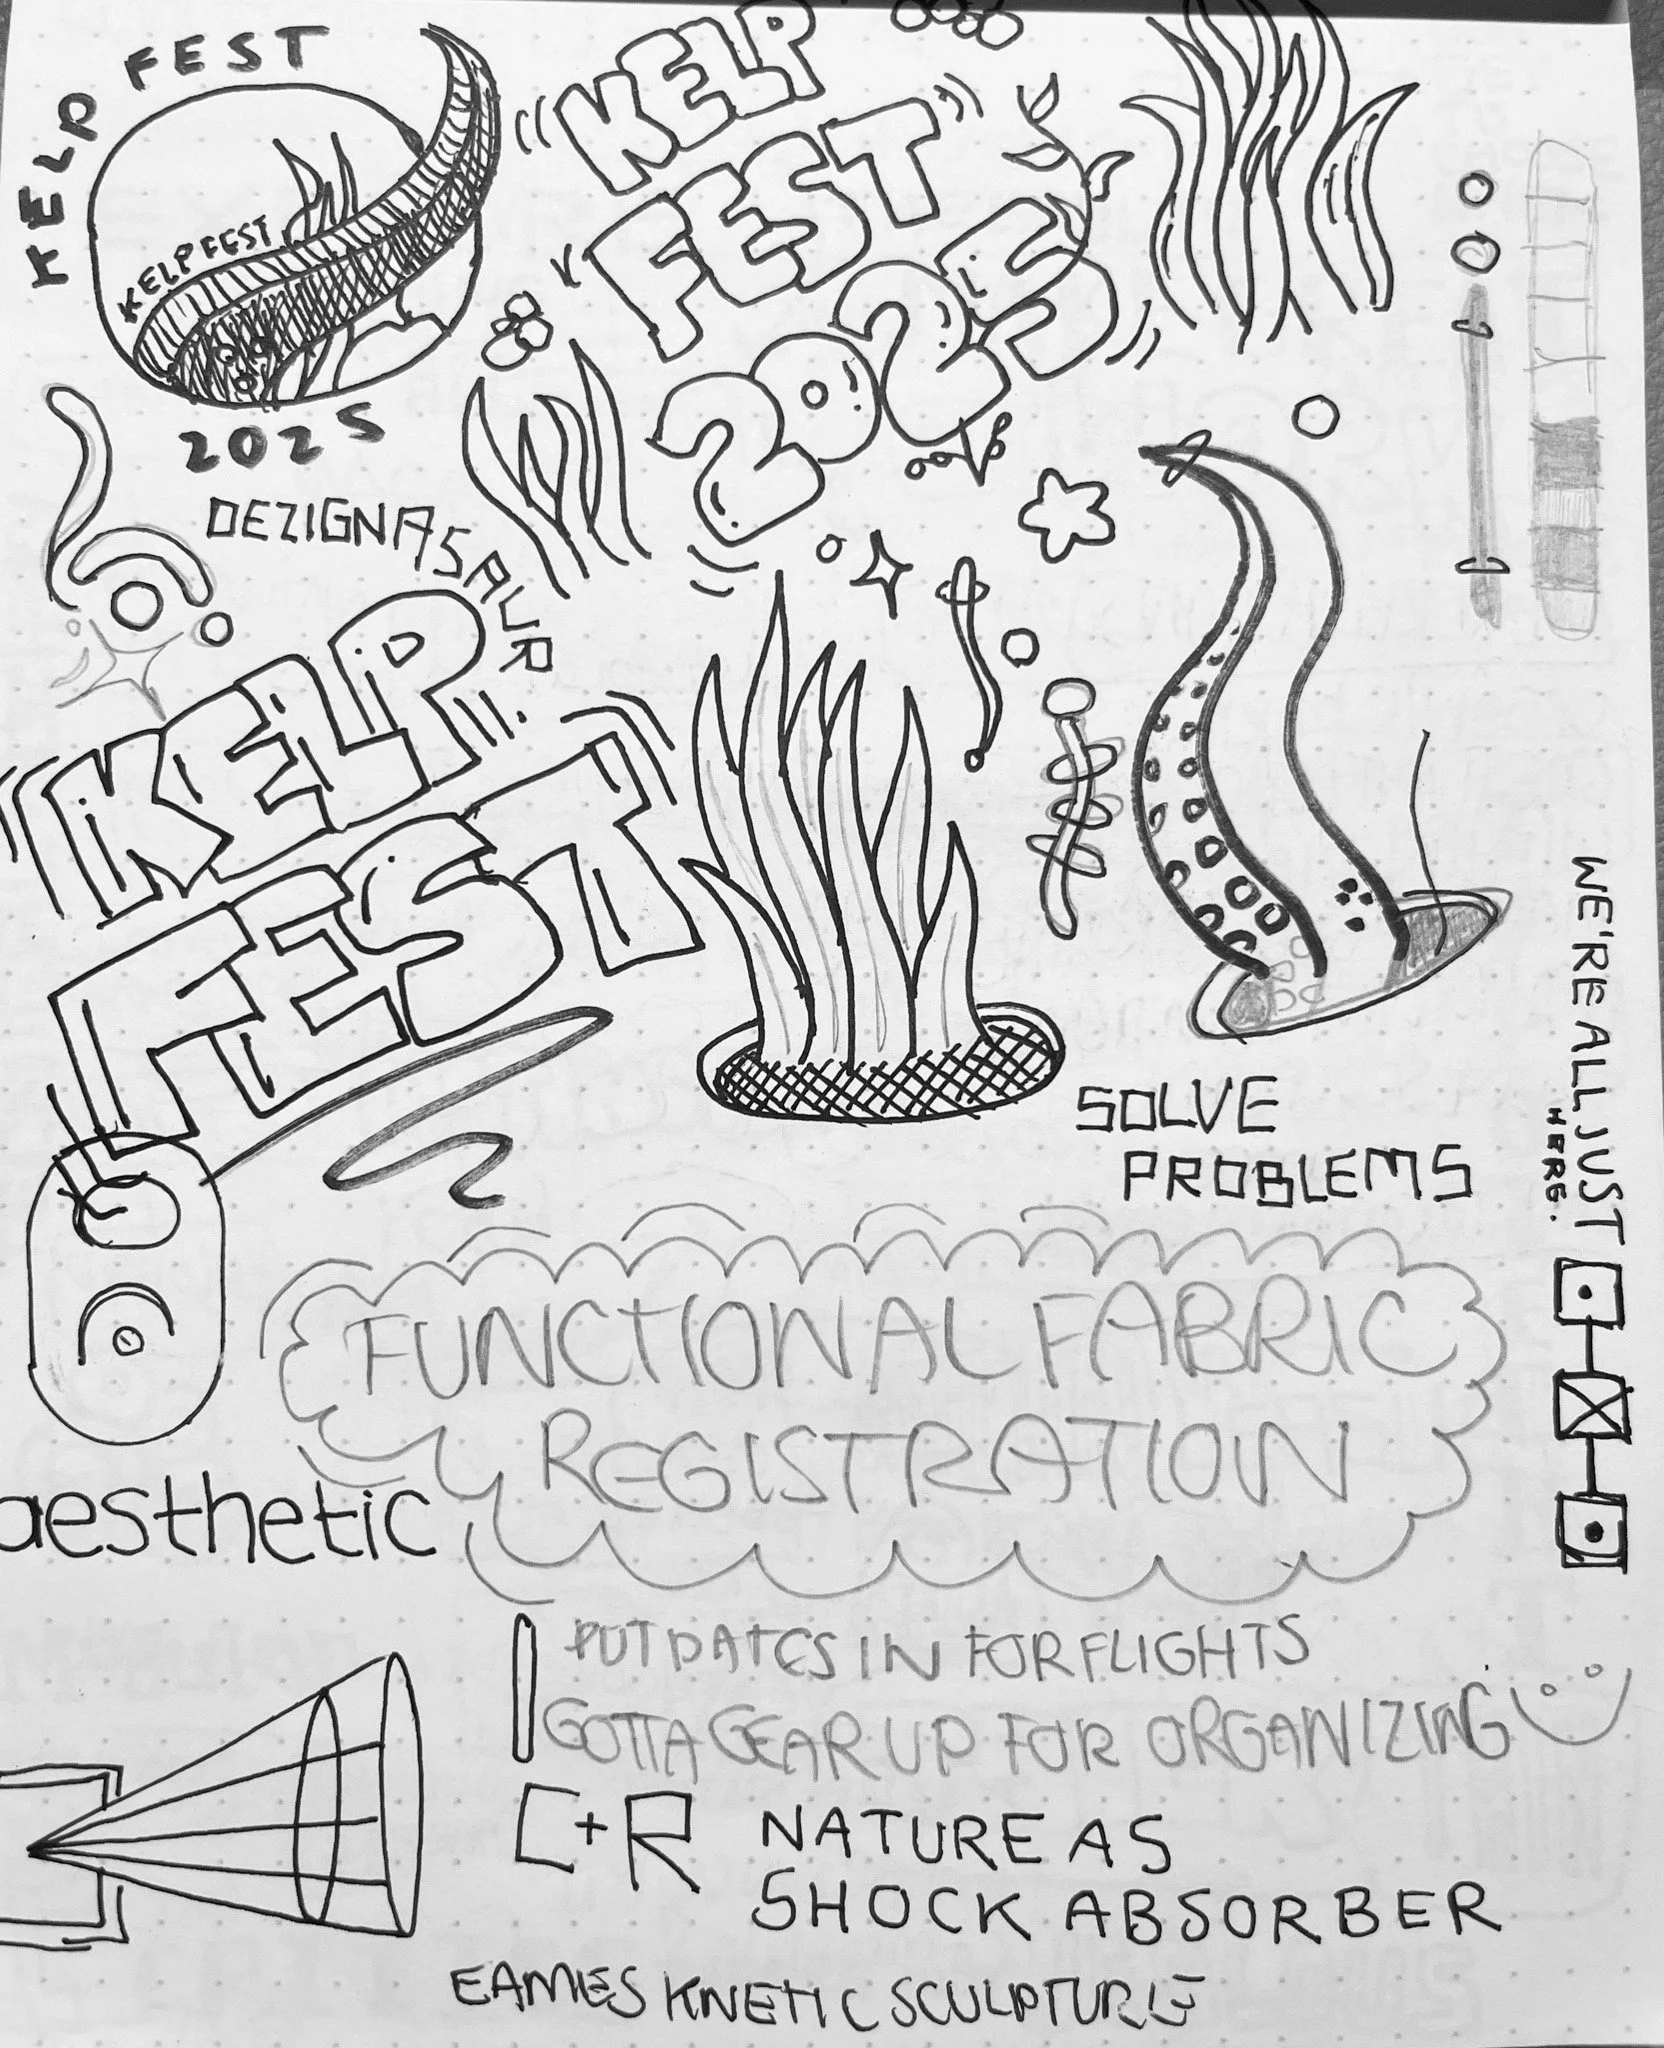 KELP FEST
2025
KELP FEST
KELP
FEST
2025
DEZIGNASAUR
KELP
FEST
SOLVE
PROBLEMS
WE'RE ALL JUST
HERE.
FUNCTIONAL FABRIC
REGISTRATION
aesthetic
PUT DATES IN FOR FLIGHTS
GOTTA GEAR UP FOR ORGANIZING
C+R NATURE AS
SHOCK ABSORBER
EAMES KNETIC SCULPTURE